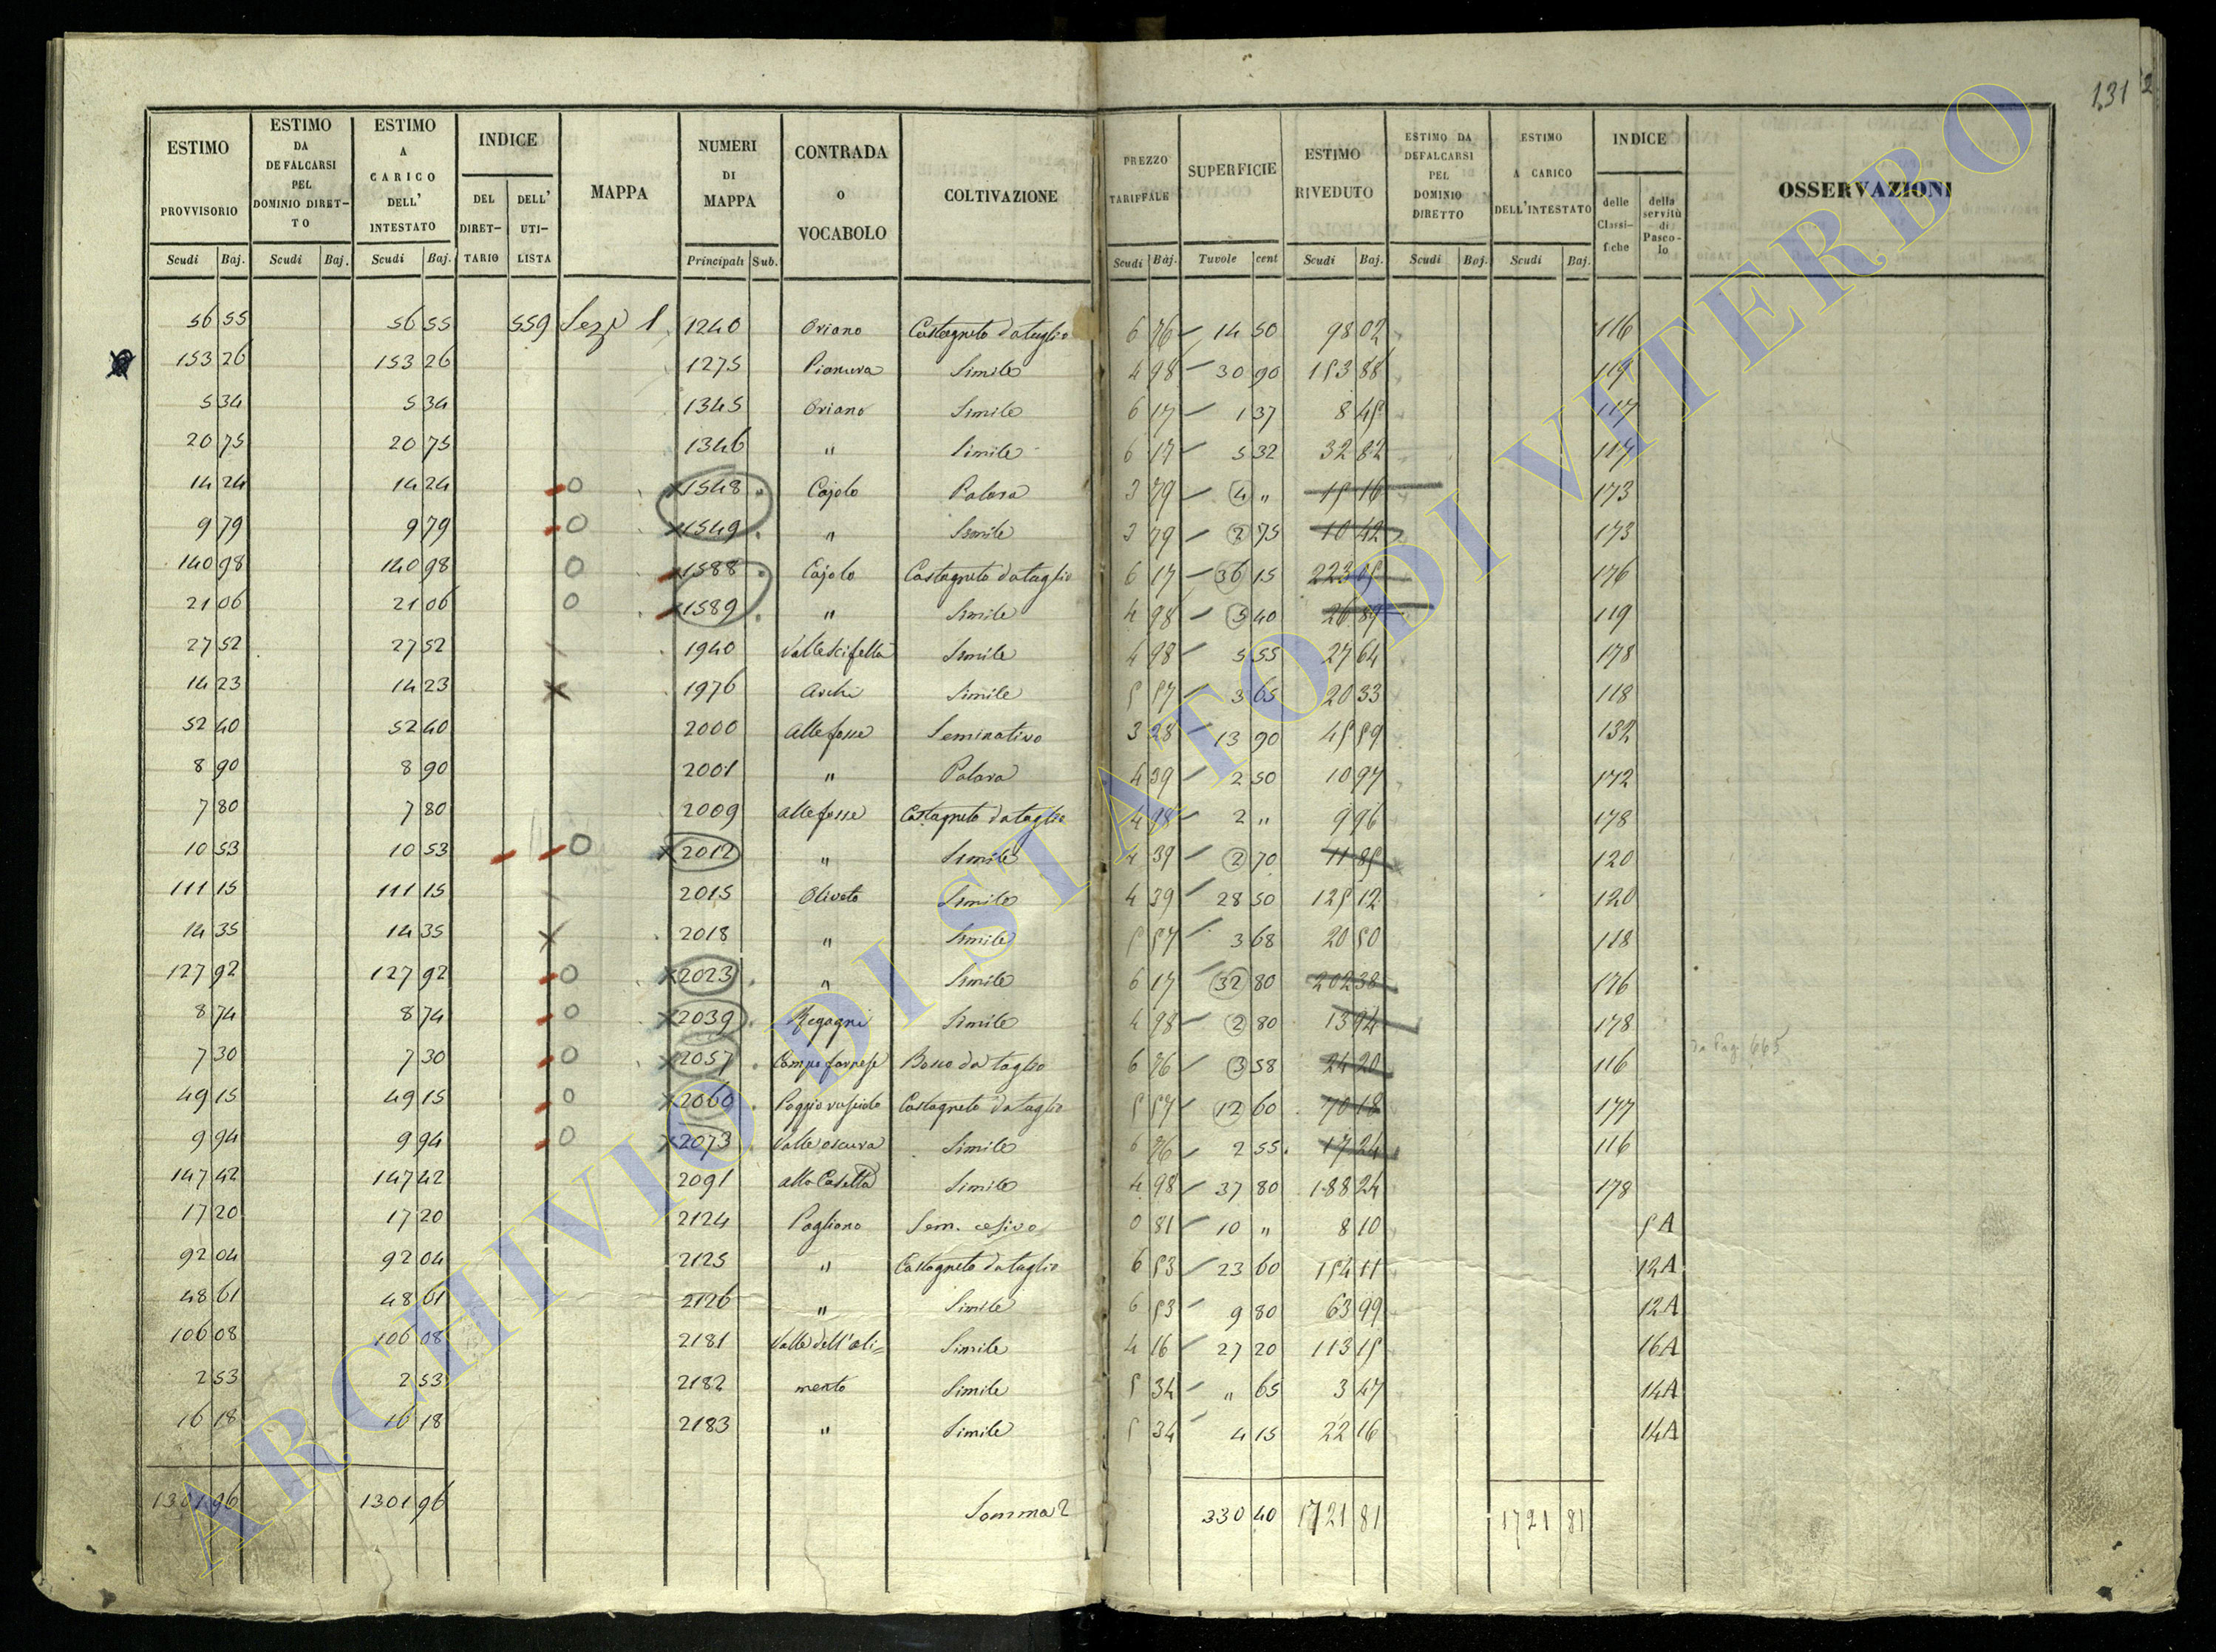 131
ESTIMO PROVVISORIO Scudi Baj. | ESTIMO DA DEFALCARSI PEL DOMINIO DIRET-TO Scudi Baj. | ESTIMO A CARICO DELL' INTESTATO Scudi Baj. | INDICE DEL DIRET-TARIO | DELL' UTI-LISTA | MAPPA | NUMERI DI MAPPA Principali Sub. | CONTRADA o VOCABOLO | COLTIVAZIONE | PREZZO TARIFFALE Scudi Baj. | SUPERFICIE Tavole cent | ESTIMO RIVEDUTO Scudi Baj. | ESTIMO DA DEFALCARSI PEL DOMINIO DIRETTO Scudi Baj. | ESTIMO A CARICO DELL'INTESTATO Scudi Baj. | INDICE delle Classi-fiche | della servitù di Pasco-lo | OSSERVAZIONI
56 55 56 55 559 Sez. 1 1240 Oriano Castagneto da taglio 6 76 14 50 98 02 116
153 26 153 26 1275 Pianura Simile 4 98 30 90 153 88 119
5 34 5 34 1345 Oriano Simile 6 17 1 37 8 45 117
20 75 20 75 1346 " Simile 6 17 5 32 32 82 117
14 24 14 24 O 1548 Cajolo Palara 3 79 4 " 15 16 173
9 79 9 79 O 1549 " Simile 3 79 2 75 10 42 173
140 98 140 98 O 1588 Cajolo Castagneto da taglio 6 17 36 15 223 05 176
21 06 21 06 O 1589 " Simile 4 98 5 40 26 89 119
27 52 27 52 1940 Simile 4 98 5 55 27 64 178
14 23 14 23 X 1976 Archi Simile 5 57 3 65 20 33 118
52 40 52 40 2000 alle fosse Seminativo 3 28 13 90 45 59 132
8 90 8 90 2001 " Palara 4 39 2 50 10 97 172
7 80 7 80 2009 alle fosse Castagneto da taglio 4 98 2 " 9 96 178
10 53 10 53 O 2012 " Simile 4 39 2 70 11 85 120
111 15 111 15 2015 Oliveto Simile 4 39 28 50 125 12 120
14 35 14 35 X 2018 " Simile 5 57 3 68 20 50 118
127 92 127 92 O 2023 " Simile 6 17 32 80 202 38 176
8 74 8 74 O 2039 Simile 4 98 2 80 13 94 178
7 30 7 30 O 2057 Campo farnese Bosco da taglio 6 76 3 58 24 20 116 Pag. 665
49 15 49 15 O 2060 Castagneto da taglio 5 57 12 60 70 18 177
9 94 9 94 O 2073 Valle oscura Simile 6 76 2 55 17 24 116
147 42 147 42 2091 alla Casetta Simile 4 98 37 80 188 24 178
17 20 17 20 2124 Pogliano Sem. cesivo 0 81 10 " 8 10 5A
92 04 92 04 2125 " Castagneto da taglio 6 53 23 60 154 11 12A
48 61 48 61 2126 " Simile 6 53 9 80 63 99 12A
106 08 106 08 2181 Valle dell'oli= Simile 4 16 27 20 113 15 16A
2 53 2 53 2182 mento Simile 5 34 " 65 3 47 14A
16 18 16 18 2183 " Simile 5 34 4 15 22 16 14A
1301 96 1301 96 Somma 330 40 1721 81 1721 81
ARCHIVIO DI STATO DI VITERBO